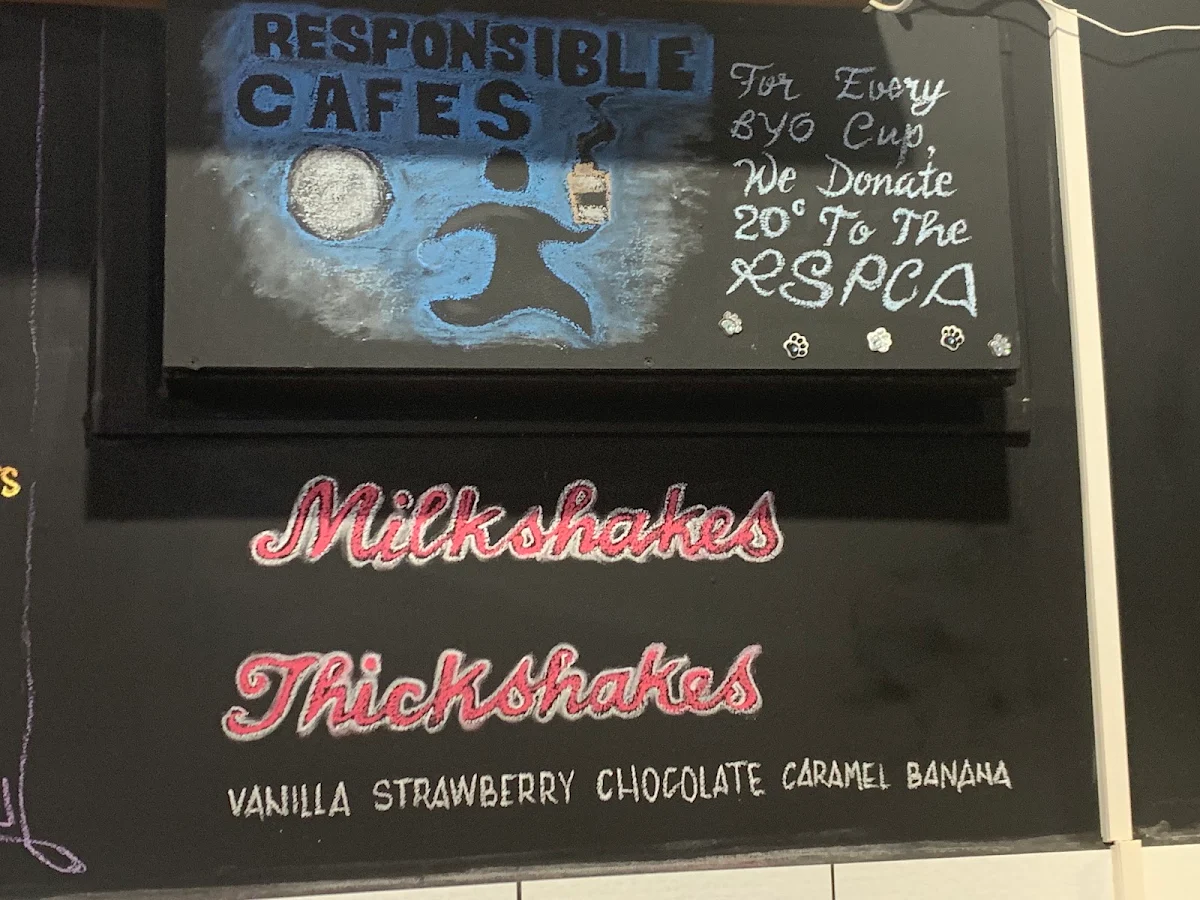 RESPONSIBLE
CAFES
For Every
BYO Cup,
We Donate
20c To The
RSPCA
Milkshakes
Thickshakes
VANILLA STRAWBERRY CHOCOLATE CARAMEL BANANA